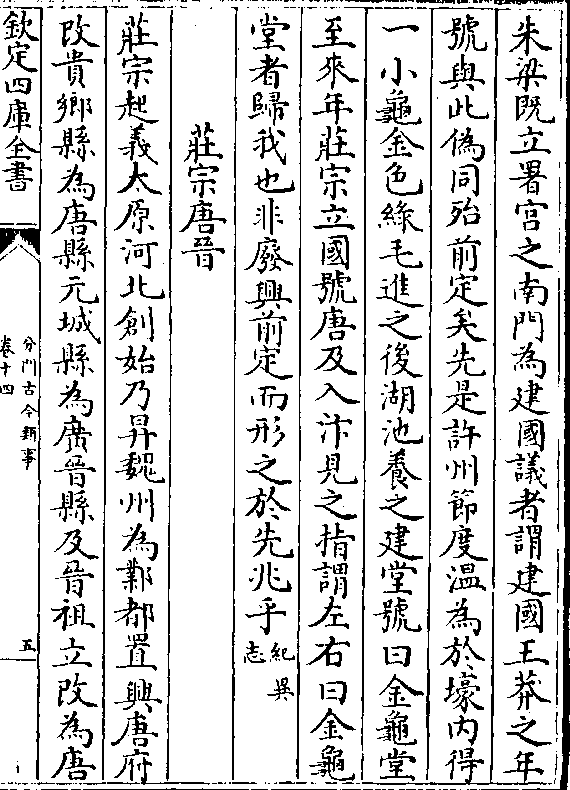 朱梁既立署宫之南門為建國議者謂建國王莽之年
號與此偽同殆前定矣先是許州節度温為於壕内得
一小龜金色緑毛進之後湖池養之建堂號曰金龜堂
至來年莊宗立國號唐及入汴見之指謂左右曰金龜
堂者歸我也非廢興前定而形之於先兆乎紀異志
莊宗唐晉
莊宗起義大原河北創始乃昇魏州為鄴都置興唐府
改貴鄉縣為唐縣元城縣為廣晉縣及晉祖立改為唐
欽定四庫全書
分門古今類事
卷十四
五